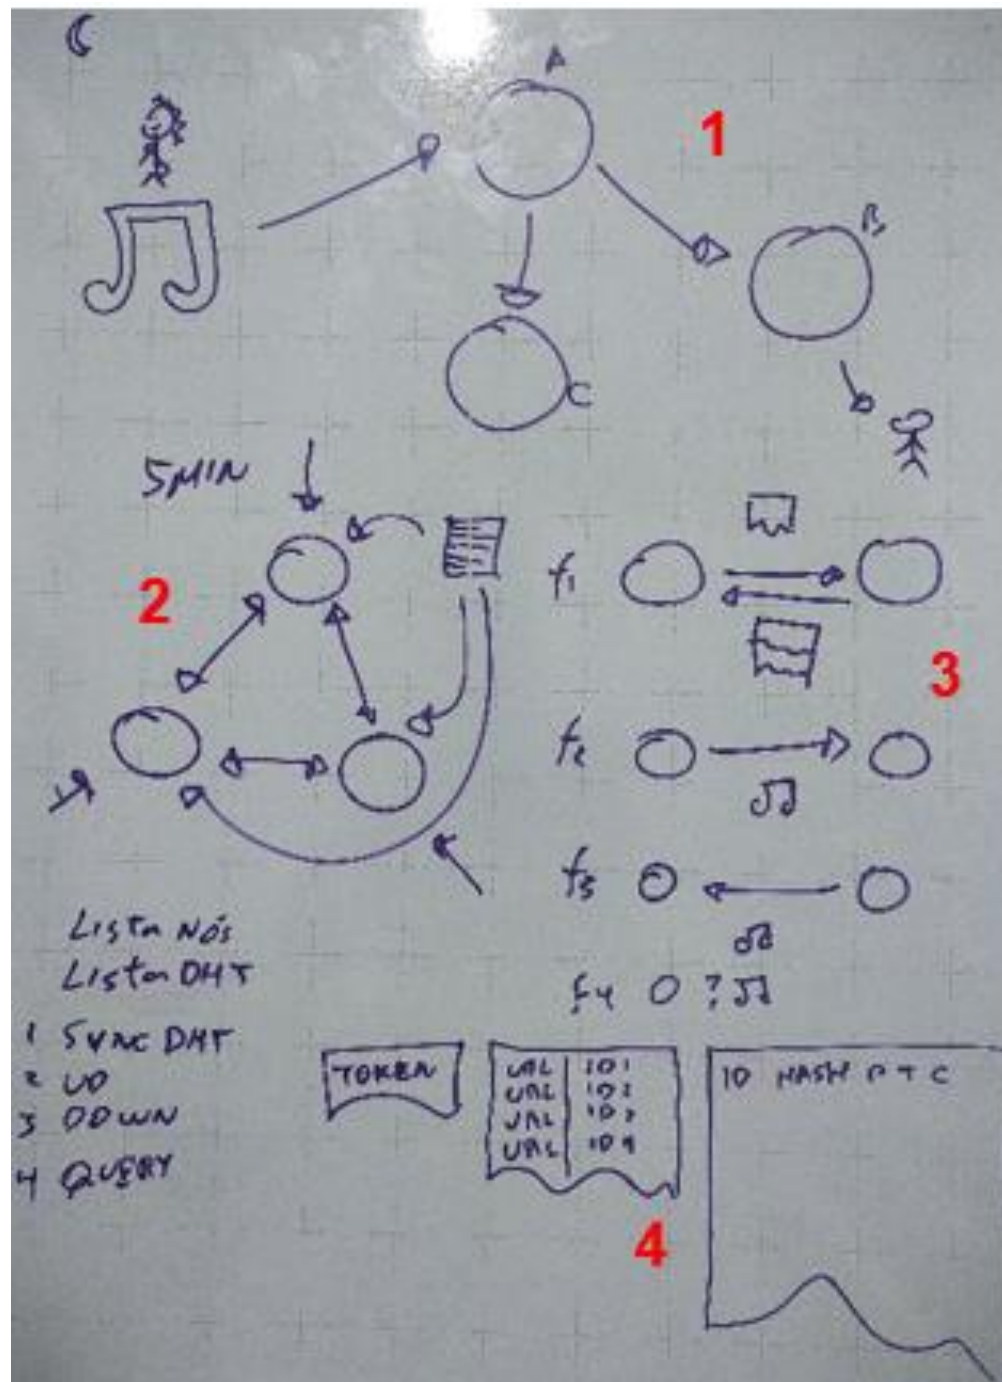 A
1
B
C
5MIN
2
f1
3
f2
f3
Lista Nós
Lista DHT
f4 ?
1 SYNC DHT
2 UP
3 DOWN
4 QUERY
TOKEN
URL ID1
URL ID2
URL ID3
URL ID4
ID HASH P T C
4